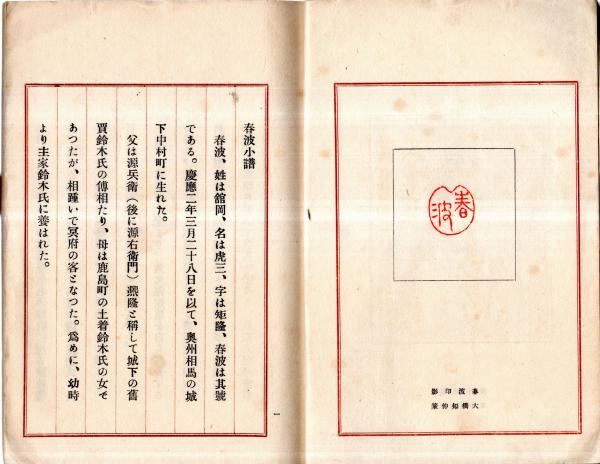 春波
春波印影
大橋知伸篆
春波小譜
春波、姓は舘岡、名は虎三、字は矩隆、春波は其號
である。慶應二年三月二十八日を以て、奥州相馬の城
下中村町に生れた。
父は源兵衛(後に源右衛門)凞隆と稱して城下の舊
賈鈴木氏の傅相たり、母は鹿島町の土着鈴木氏の女で
あつたが、相踵いで冥府の客となつた。爲めに、幼時
より主家鈴木氏に養はれた。
一